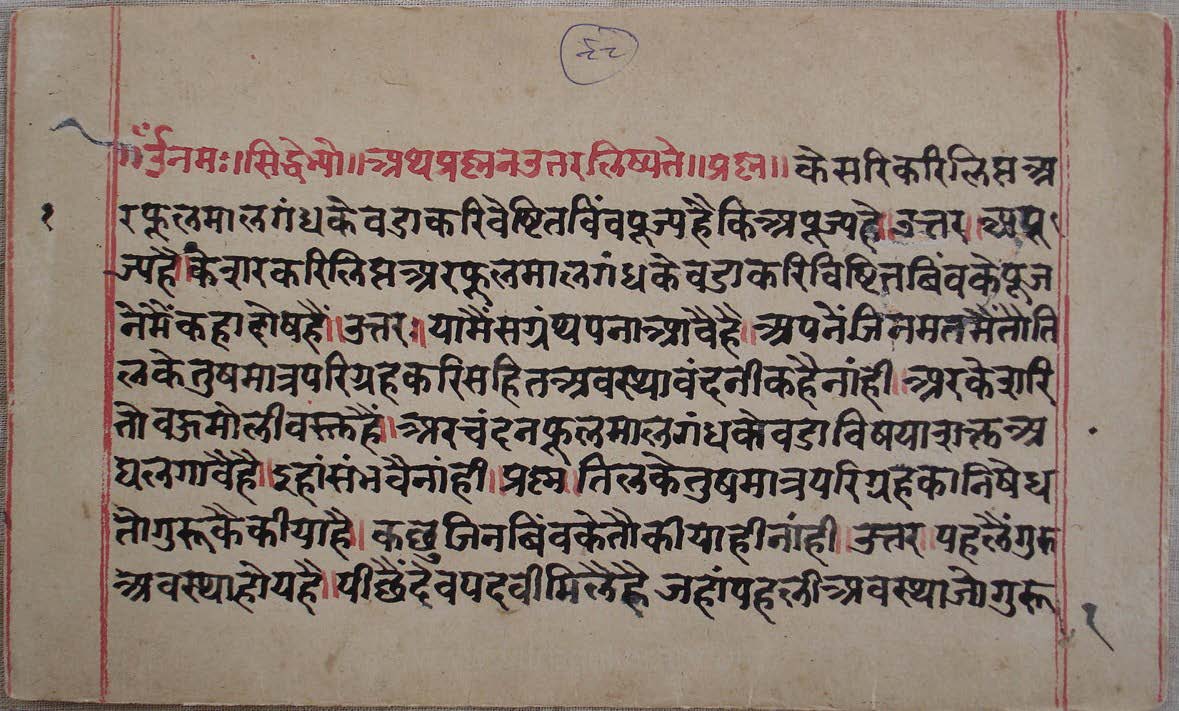 ६८
ॐ नमः॥सिद्धेभ्यो॥अथप्रश्ननउत्तरलिष्यते॥प्रश्न॥केसरिकरिलिप्तअ
१
रफूलमालगंधकेवडाकरिवेष्टितबिंवपूज्यहैकिअपूज्यहै॥उत्तर॥अपू
ज्यहै॥केशरकरिलिप्तअरफूलमालगंधकेवडाकरिविष्टितबिंवकेपूज
नेंमैंकहादोषहै॥उत्तर॥यामैंसग्रंथपनाआवैहै॥अपनेंजिनमतमैंतौति
लकेतुषमात्रपरिग्रहकरिसहितअवस्थावंदनीकहैनांही॥अरकेशरि
तौ
अरचंदनफूलमालगंधकेवडाविषयाशक्तअ
द्यलगावैहै॥इहांसंभवैनांही॥प्रश्न॥तिलकेतुषमात्रपरिग्रहकानिषेध
तोगुरूकैकीयाहै॥कछुजिनबिंवकेतौकीयाहीनांही॥उत्तर॥पहलैंगुरू
अवस्थाहोयहै॥पीछैंदेवपदवीमिलैहै जहांपहलीअवस्थाजोगुरू
१